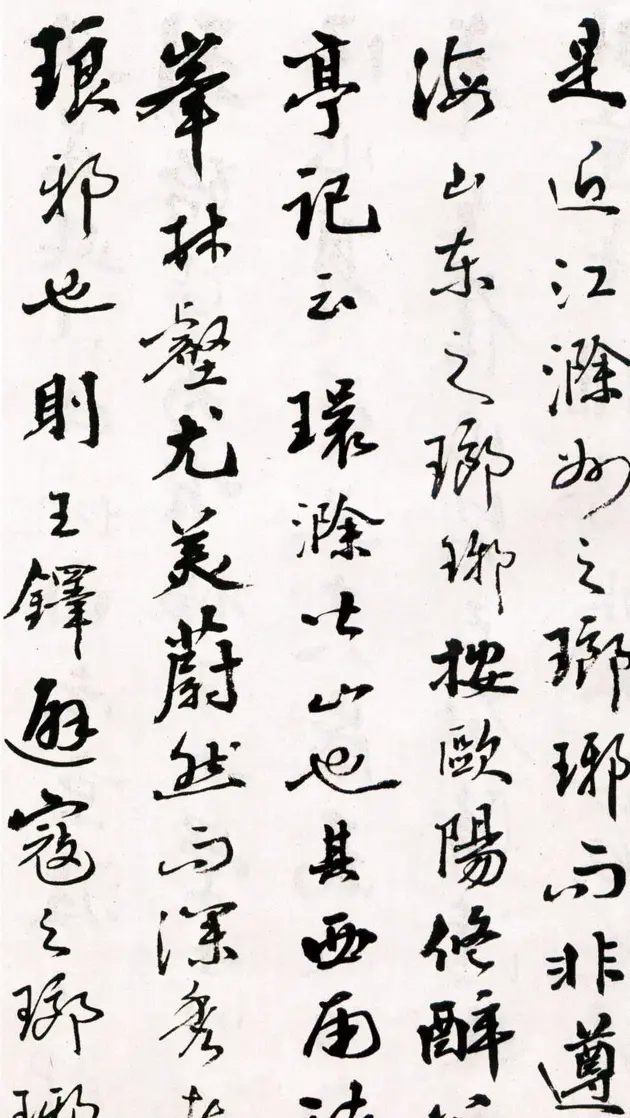 是近江滁州之瑯琊而非遵
海山东之瑯琊按歐陽修醉翁
亭記云環滁皆山也其西南諸
峯林壑尤美蔚然而深秀者
琅邪也則王鐸避寇之瑯琊